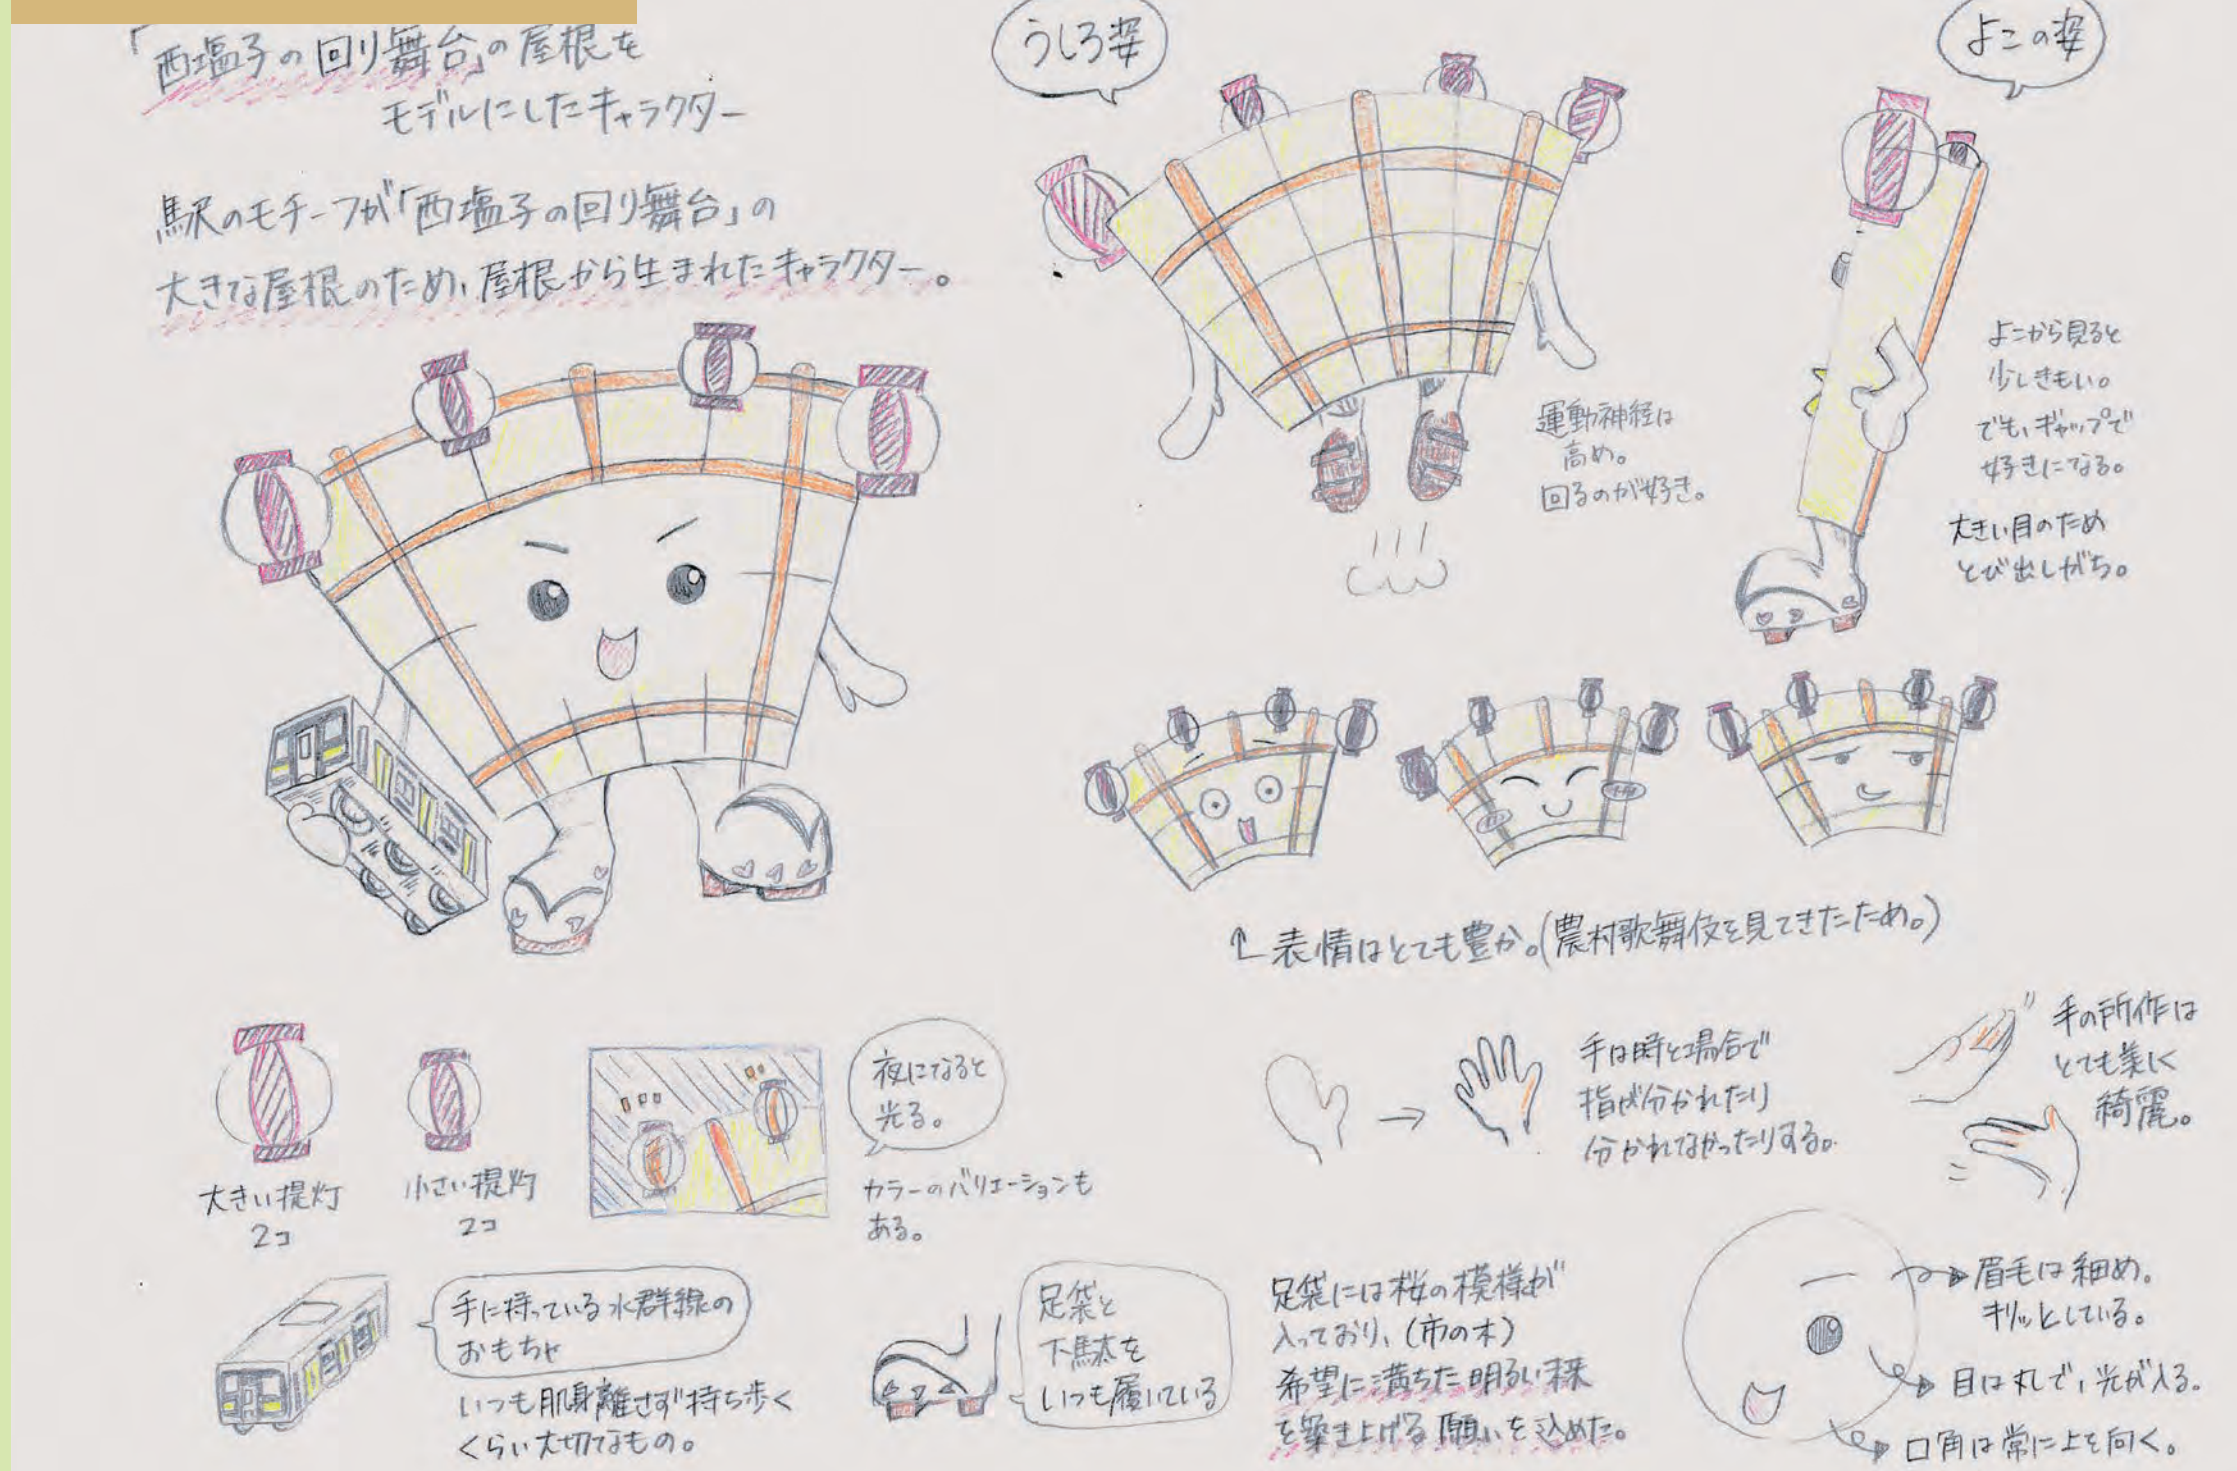 「西塩子の回り舞台」の屋根を
モデルにしたキャラクター
駅のモチーフが「西塩子の回り舞台」の
大きな屋根のため、屋根から生まれたキャラクター。
うしろ姿
運動神経は
高め。
回るのが好き。
よこの姿
よこから見ると
少しきもい。
でも、ギャップで
好きになる。
大きい目のため
とび出しがち。
↑表情はとても豊か。(農村歌舞伎を見てきたため。)
大きい提灯
2コ
小さい提灯
2コ
夜になると
光る。
カラーのバリエーションも
ある。
手は時と場合で
指が分かれたり
分かれてなかったりする。
手の所作は
とても美しく
綺麗。
手に持っている水群線の
おもちゃ
いつも肌身離さず持ち歩く
くらい大切なもの。
足袋と
下駄を
いつも履いている
足袋には桜の模様が
入っており、(市の木)
希望に満ちた明るい未来
を築き上げる願いを込めた。
眉毛は細め。
キリッとしている。
目は丸で、光が入る。
口角は常に上を向く。